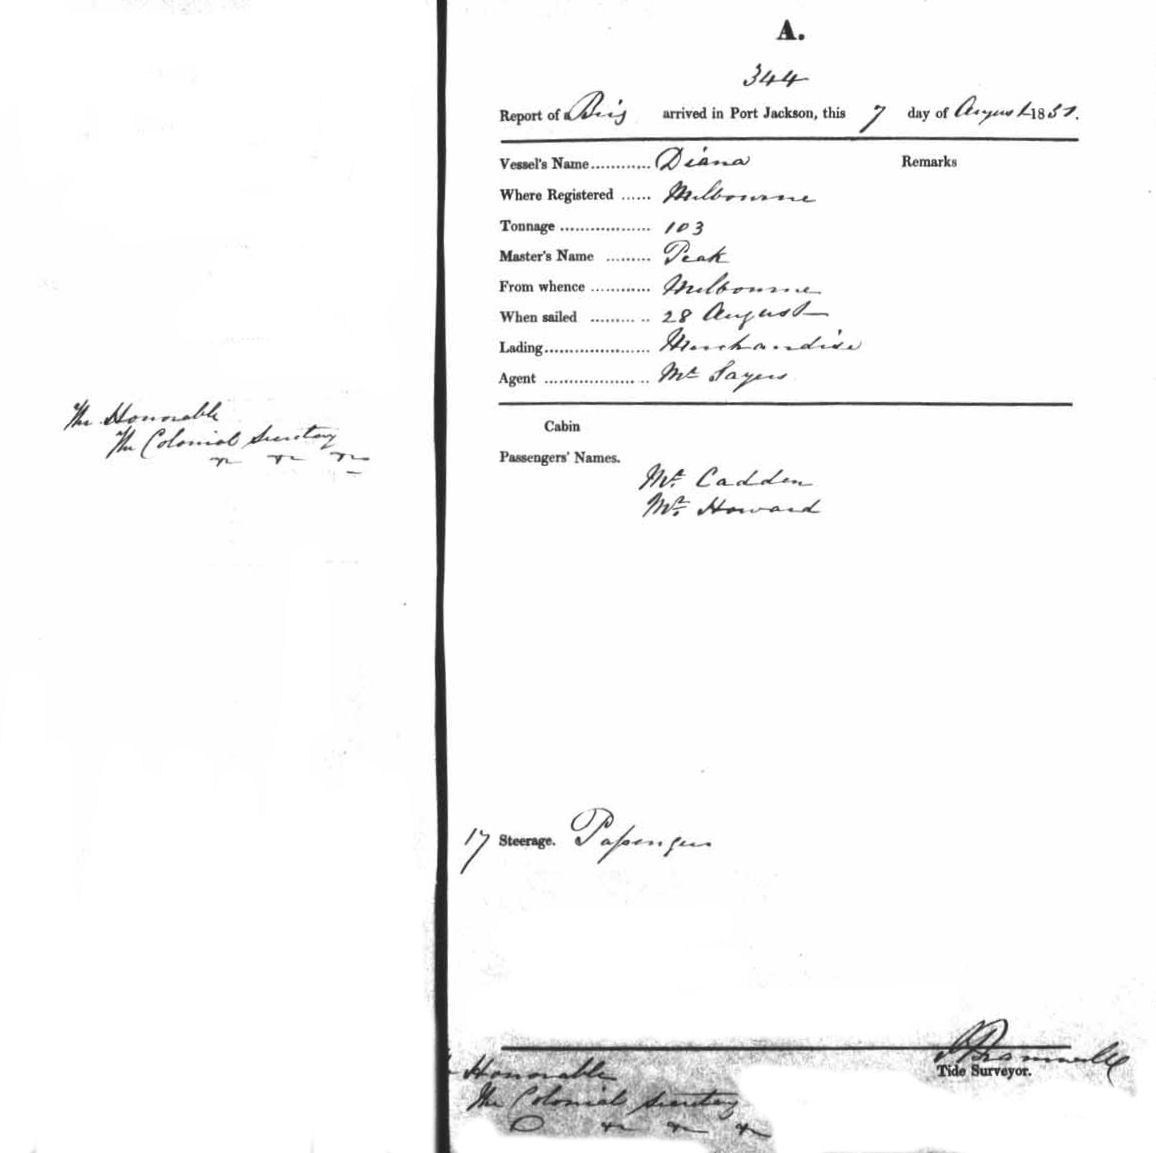 The Honorable
The Colonial Secretary
A.
344
Report of a Brig arrived in Port Jackson, this 7 day of August 1851.
Vessel's Name............ Diana Remarks
Where Registered ...... Melbourne
Tonnage .................. 103
Master's Name ......... Peak
From whence ............ Melbourne
When sailed ......... .. 28 August
Lading..................... Merchandise
Agent ................... .. Mr Sayers
Cabin
Passengers' Names.
Mr. Cadden
Mr. Howard
17 Steerage. Passengers
Tide Surveyor.
Honorable
The Colonial Secretary